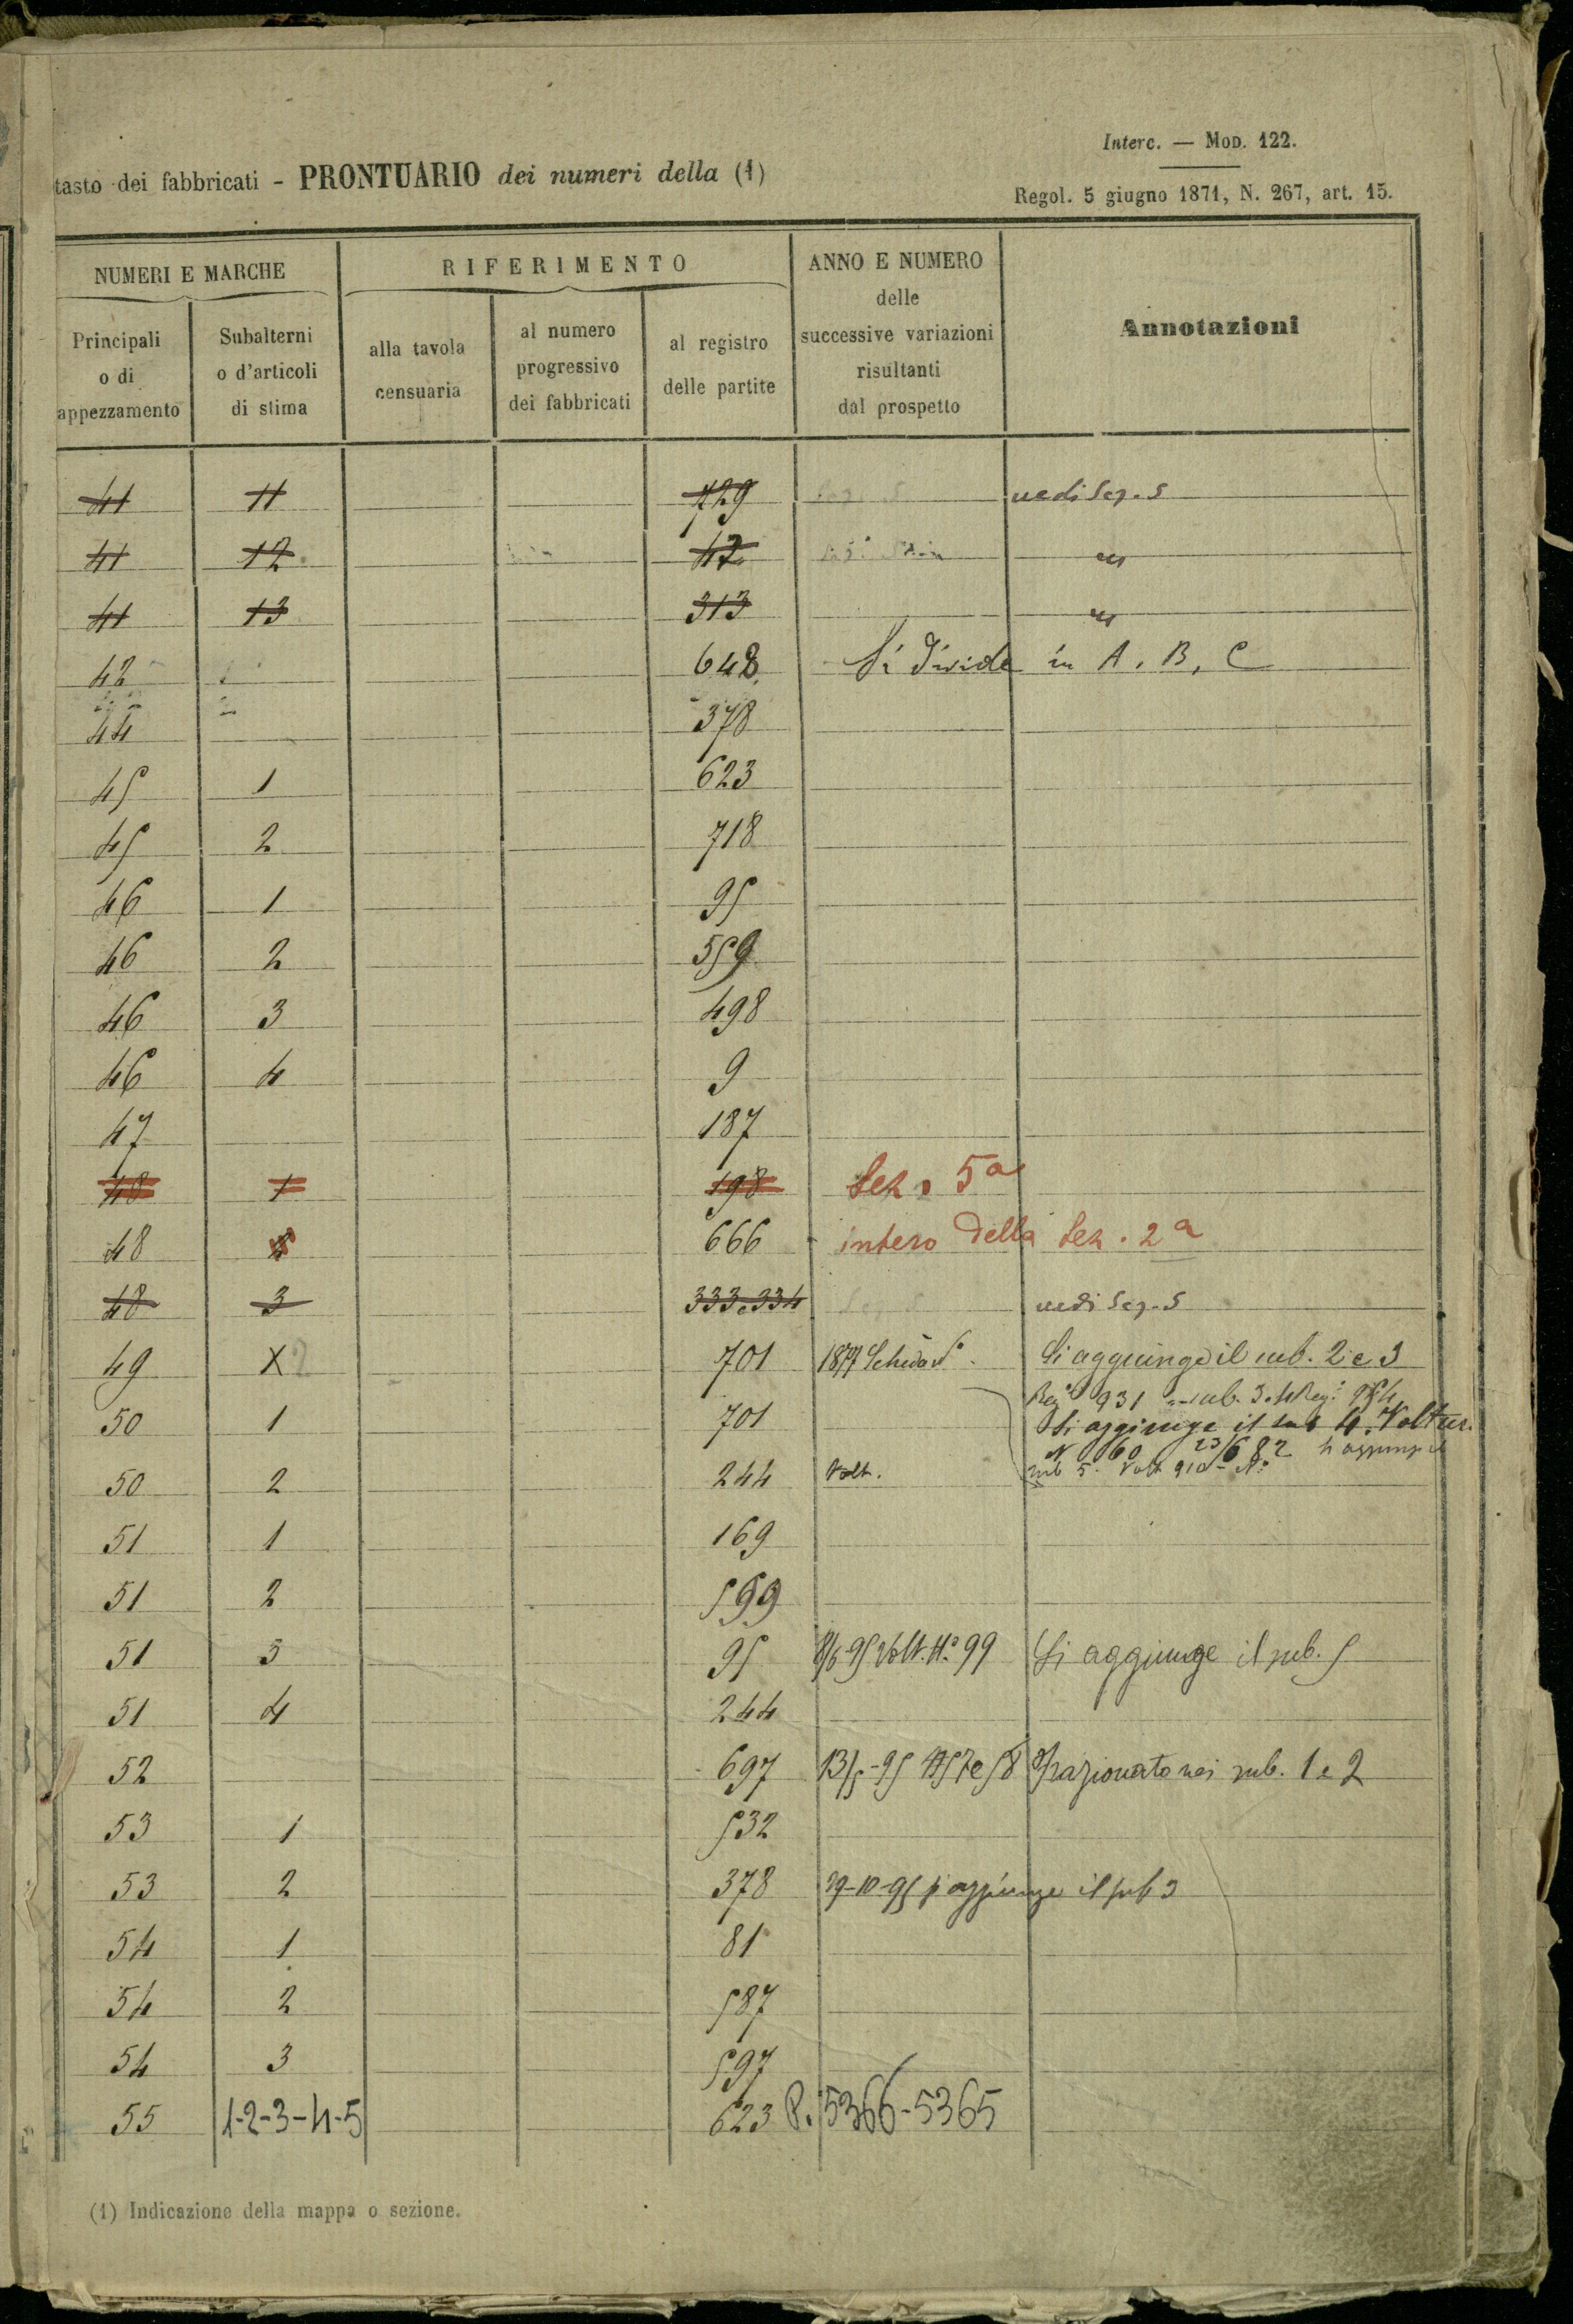 Interc. — Mod. 122.
tasto dei fabbricati - PRONTUARIO dei numeri della (1)
Regol. 5 giugno 1871, N. 267, art. 15.
NUMERI E MARCHE
RIFERIMENTO
ANNO E NUMERO delle successive variazioni risultanti dal prospetto
Annotazioni
Principali o di appezzamento
Subalterni o d'articoli di stima
alla tavola censuaria
al numero progressivo dei fabbricati
al registro delle partite
41 11 729 vedi Sez. 5
41 12 42 "
41 13 313 "
42 648 Si divide in A, B, C
44 378
45 1 623
45 2 718
46 1 95
46 2 559
46 3 498
46 4 9
47 187
48 1 198 Sez. 5a
48 666 intero della Sez. 2a
48 3 333.334 vedi Sez. 5
49 X 2 701 Si aggiunge il sub. 2 e 3
931 sub. 3.
50 1 701 Si aggiunge il sub 4. Voltur.
N 60 23/6 82
50 2 244 Volt. sub 5. Volt
51 1 169
51 2 599
51 3 95 Volt. N.° 99 Si aggiunge il sub. 5
51 4 244
52 697 13/5-95 57 e 58 frazionato nei sub. 1 e 2
53 1 532
53 2 378 29-10-95 si aggiunge il sub 3
54 1 81
54 2 587
54 3 597
55 1-2-3-4-5 623 P. 5366-5365
(1) Indicazione della mappa o sezione.